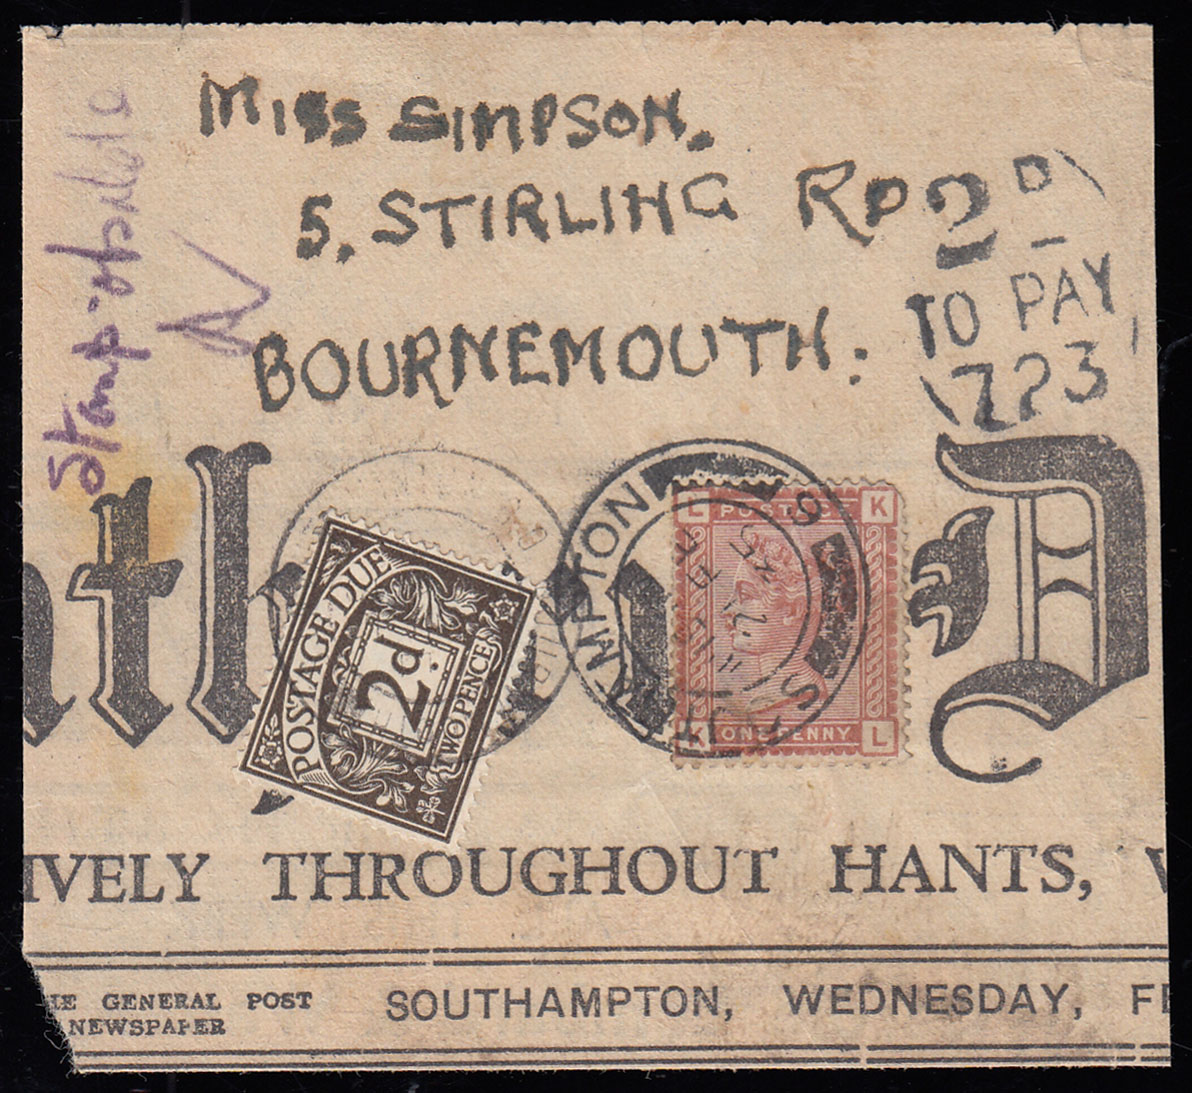 Miss SIMPSON.
5. STIRLING RD
BOURNEMOUTH:
Stamp obsolete
2D
TO PAY
723
POSTAGE DUE
2d.
TWO PENCE
L POSTAGE K
K ONE PENNY L
AMPTON
th D
IVELY THROUGHOUT HANTS,
HE GENERAL POST
NEWSPAPER
SOUTHAMPTON, WEDNESDAY, FE